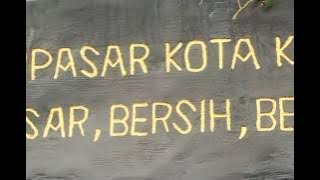 PASAR KOTA K
SAR, BERSIH, BE